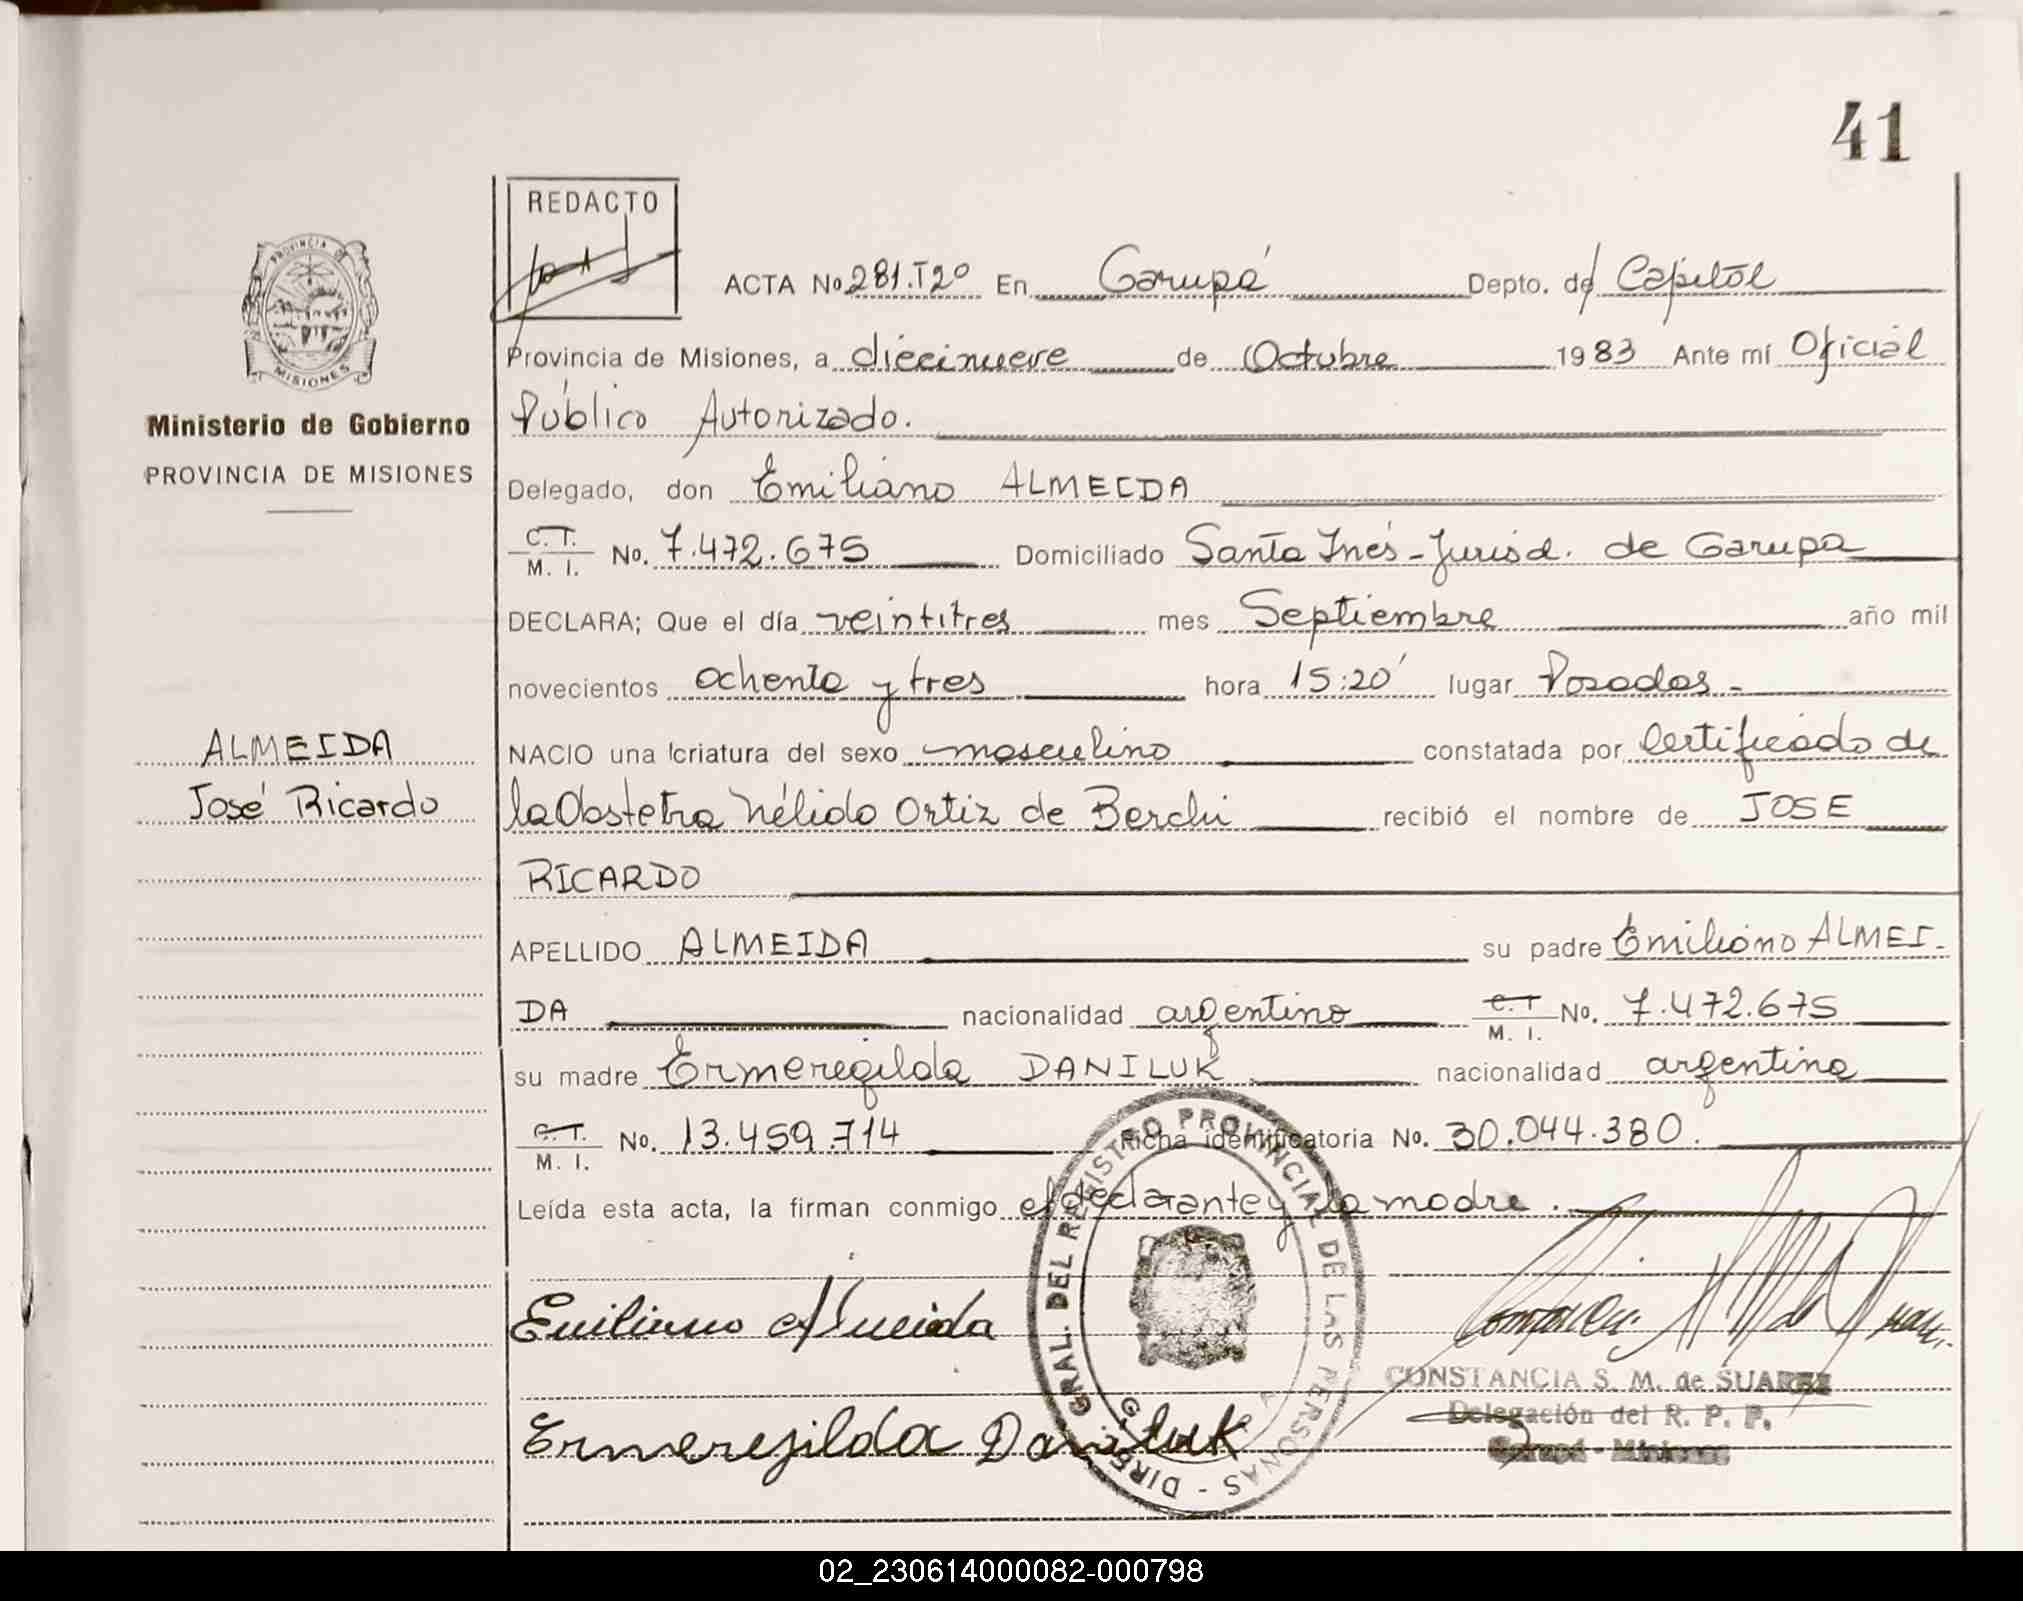 41
REDACTO
PROVINCIA DE
MISIONES
Ministerio de Gobierno
PROVINCIA DE MISIONES
ALMEIDA
José Ricardo
ACTA No 281.T2º En Garupá Depto. de Capital
Provincia de Misiones, a diecinueve de Octubre 1983 Ante mí Oficial
Público Autorizado.
Delegado, don Emiliano ALMEIDA
C. T. M. I. No. 7.472.675 Domiciliado Santa Inés - Jurisd. de Garupa
DECLARA; Que el día veintitres mes Septiembre año mil
novecientos ochenta y tres hora 15:20' lugar Posadas -
NACIO una criatura del sexo masculino constatada por Certificado de
la Obstetra Nélida Ortiz de Berchi recibió el nombre de JOSE
RICARDO
APELLIDO ALMEIDA su padre Emiliano ALMEI-
DA nacionalidad argentino C. T M. I. No. 7.472.675
su madre Ermeregilda DANILUK nacionalidad argentina
C. T. M. I. No. 13.459.714 Ficha identificatoria No. 30.044.380.
Leída esta acta, la firman conmigo el declarante y la madre.
Emiliano Almeida
Ermeregilda Daniluk
DIREC. GRAL. DEL REGISTRO PROVINCIAL DE LAS PERSONAS -
CONSTANCIA S. M. de SUAREZ
Delegación del R. P. P.
Garupá - Misiones
02_230614000082-000798